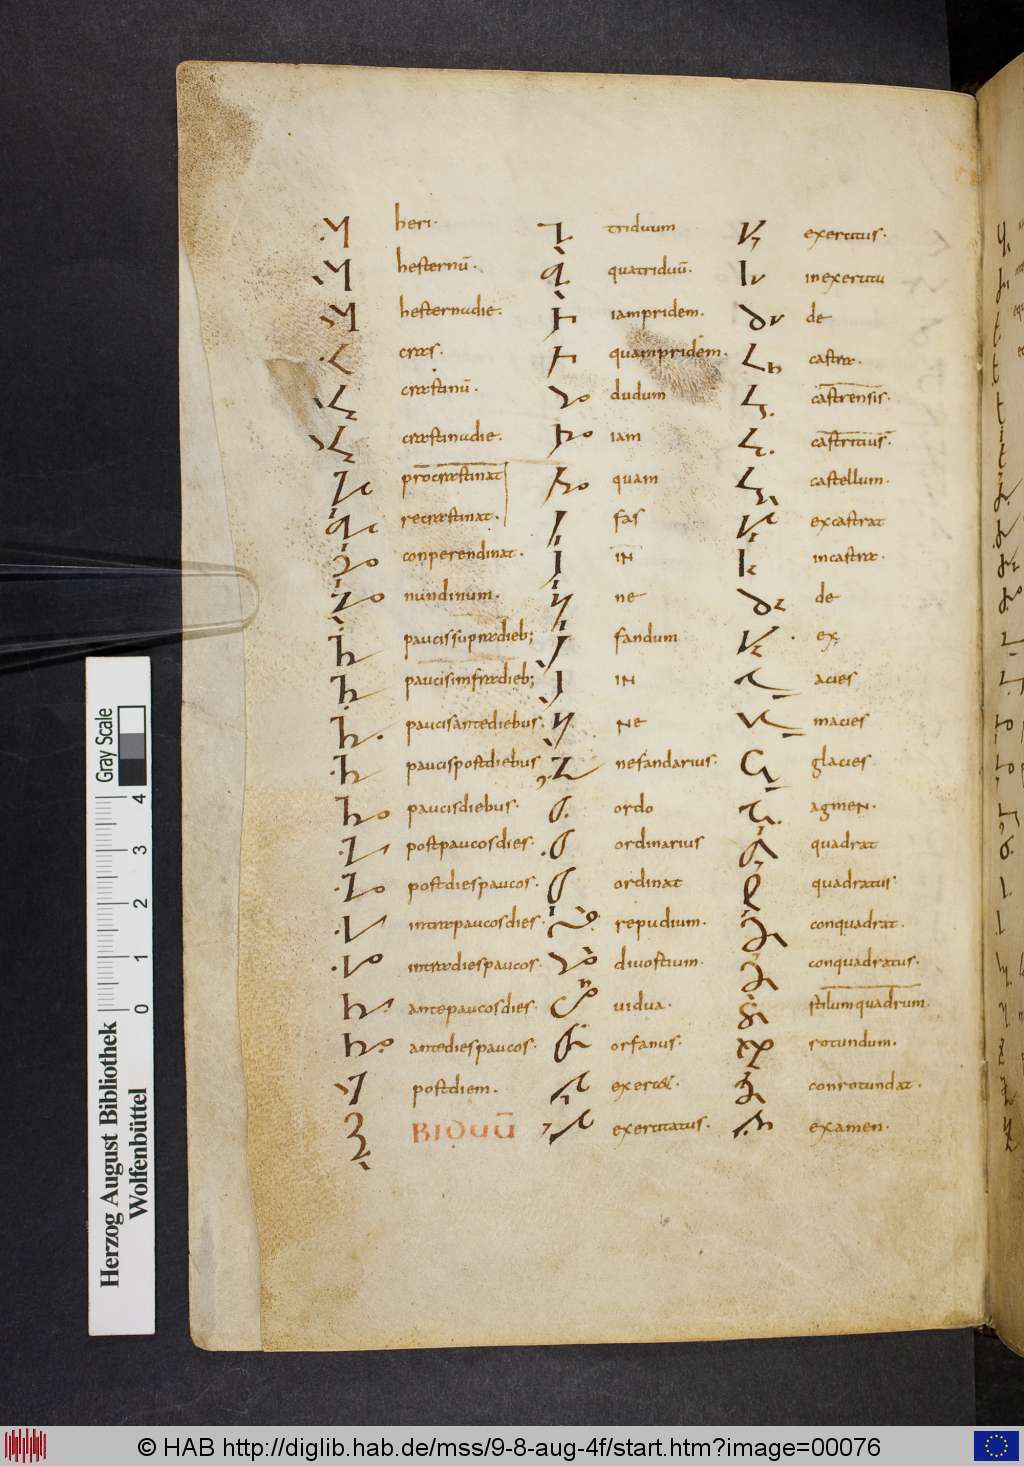 heri·
hesternū·
hesternadie·
cras·
crastinū·
crastinadie·
prōcrastinat
recrastinat·
conperendinat·
nundinum·
paucissupradieb;
paucisinfradieb;
paucisantediebus·
paucispostdiebus
paucisdiebus·
postpaucosdies·
postdiespaucos·
intrapaucosdies·
intradiespaucos·
antepaucosdies·
antediespaucos·
postdiem·
BIDUŪ
triduum
quatriduū·
iampridem·
quampridem·
dudum
iam
quam
fas
IN
ne
fandum
IN
Ne
nefandarius·
ordo
ordinarius
ordinat
repudium·
divostium·
vidua·
orfanus·
exercitatus·
exercitus·
inexercitu
de
castra·
castrensis·
castricius·
castellum·
excastrat
incastra·
de
ex
acies
macies
glacies
agmen·
quadrat
quadratus·
conquadrat·
conquadratus·
stilumquadrum·
rotundum·
conrotundat·
examen·
Herzog August Bibliothek
Wolfenbüttel
Gray Scale
0 1 2 3 4
© HAB http://diglib.hab.de/mss/9-8-aug-4f/start.htm?image=00076